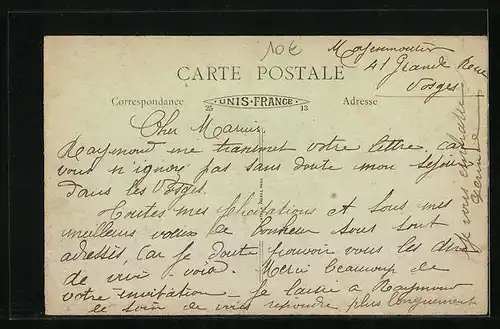 10€
Moyenmoutier
41 Grande Rue
Vosges
CARTE POSTALE
Correspondance
UNIS-FRANCE
25
13
Adresse
Cher Marius
Raymond me transmet votre lettre, car
vous n'ignorez pas sans doute mon séjour
dans les Vosges.
Toutes mes félicitations et tous mes
meilleurs vœux de bonheur vous sont
adressés, car je doute pouvoir vous les dire
de vive-voix. Merci beaucoup de
votre invitation - Je laisse à Raymond
le soin de vous répondre plus longuement
Je vous embrasse